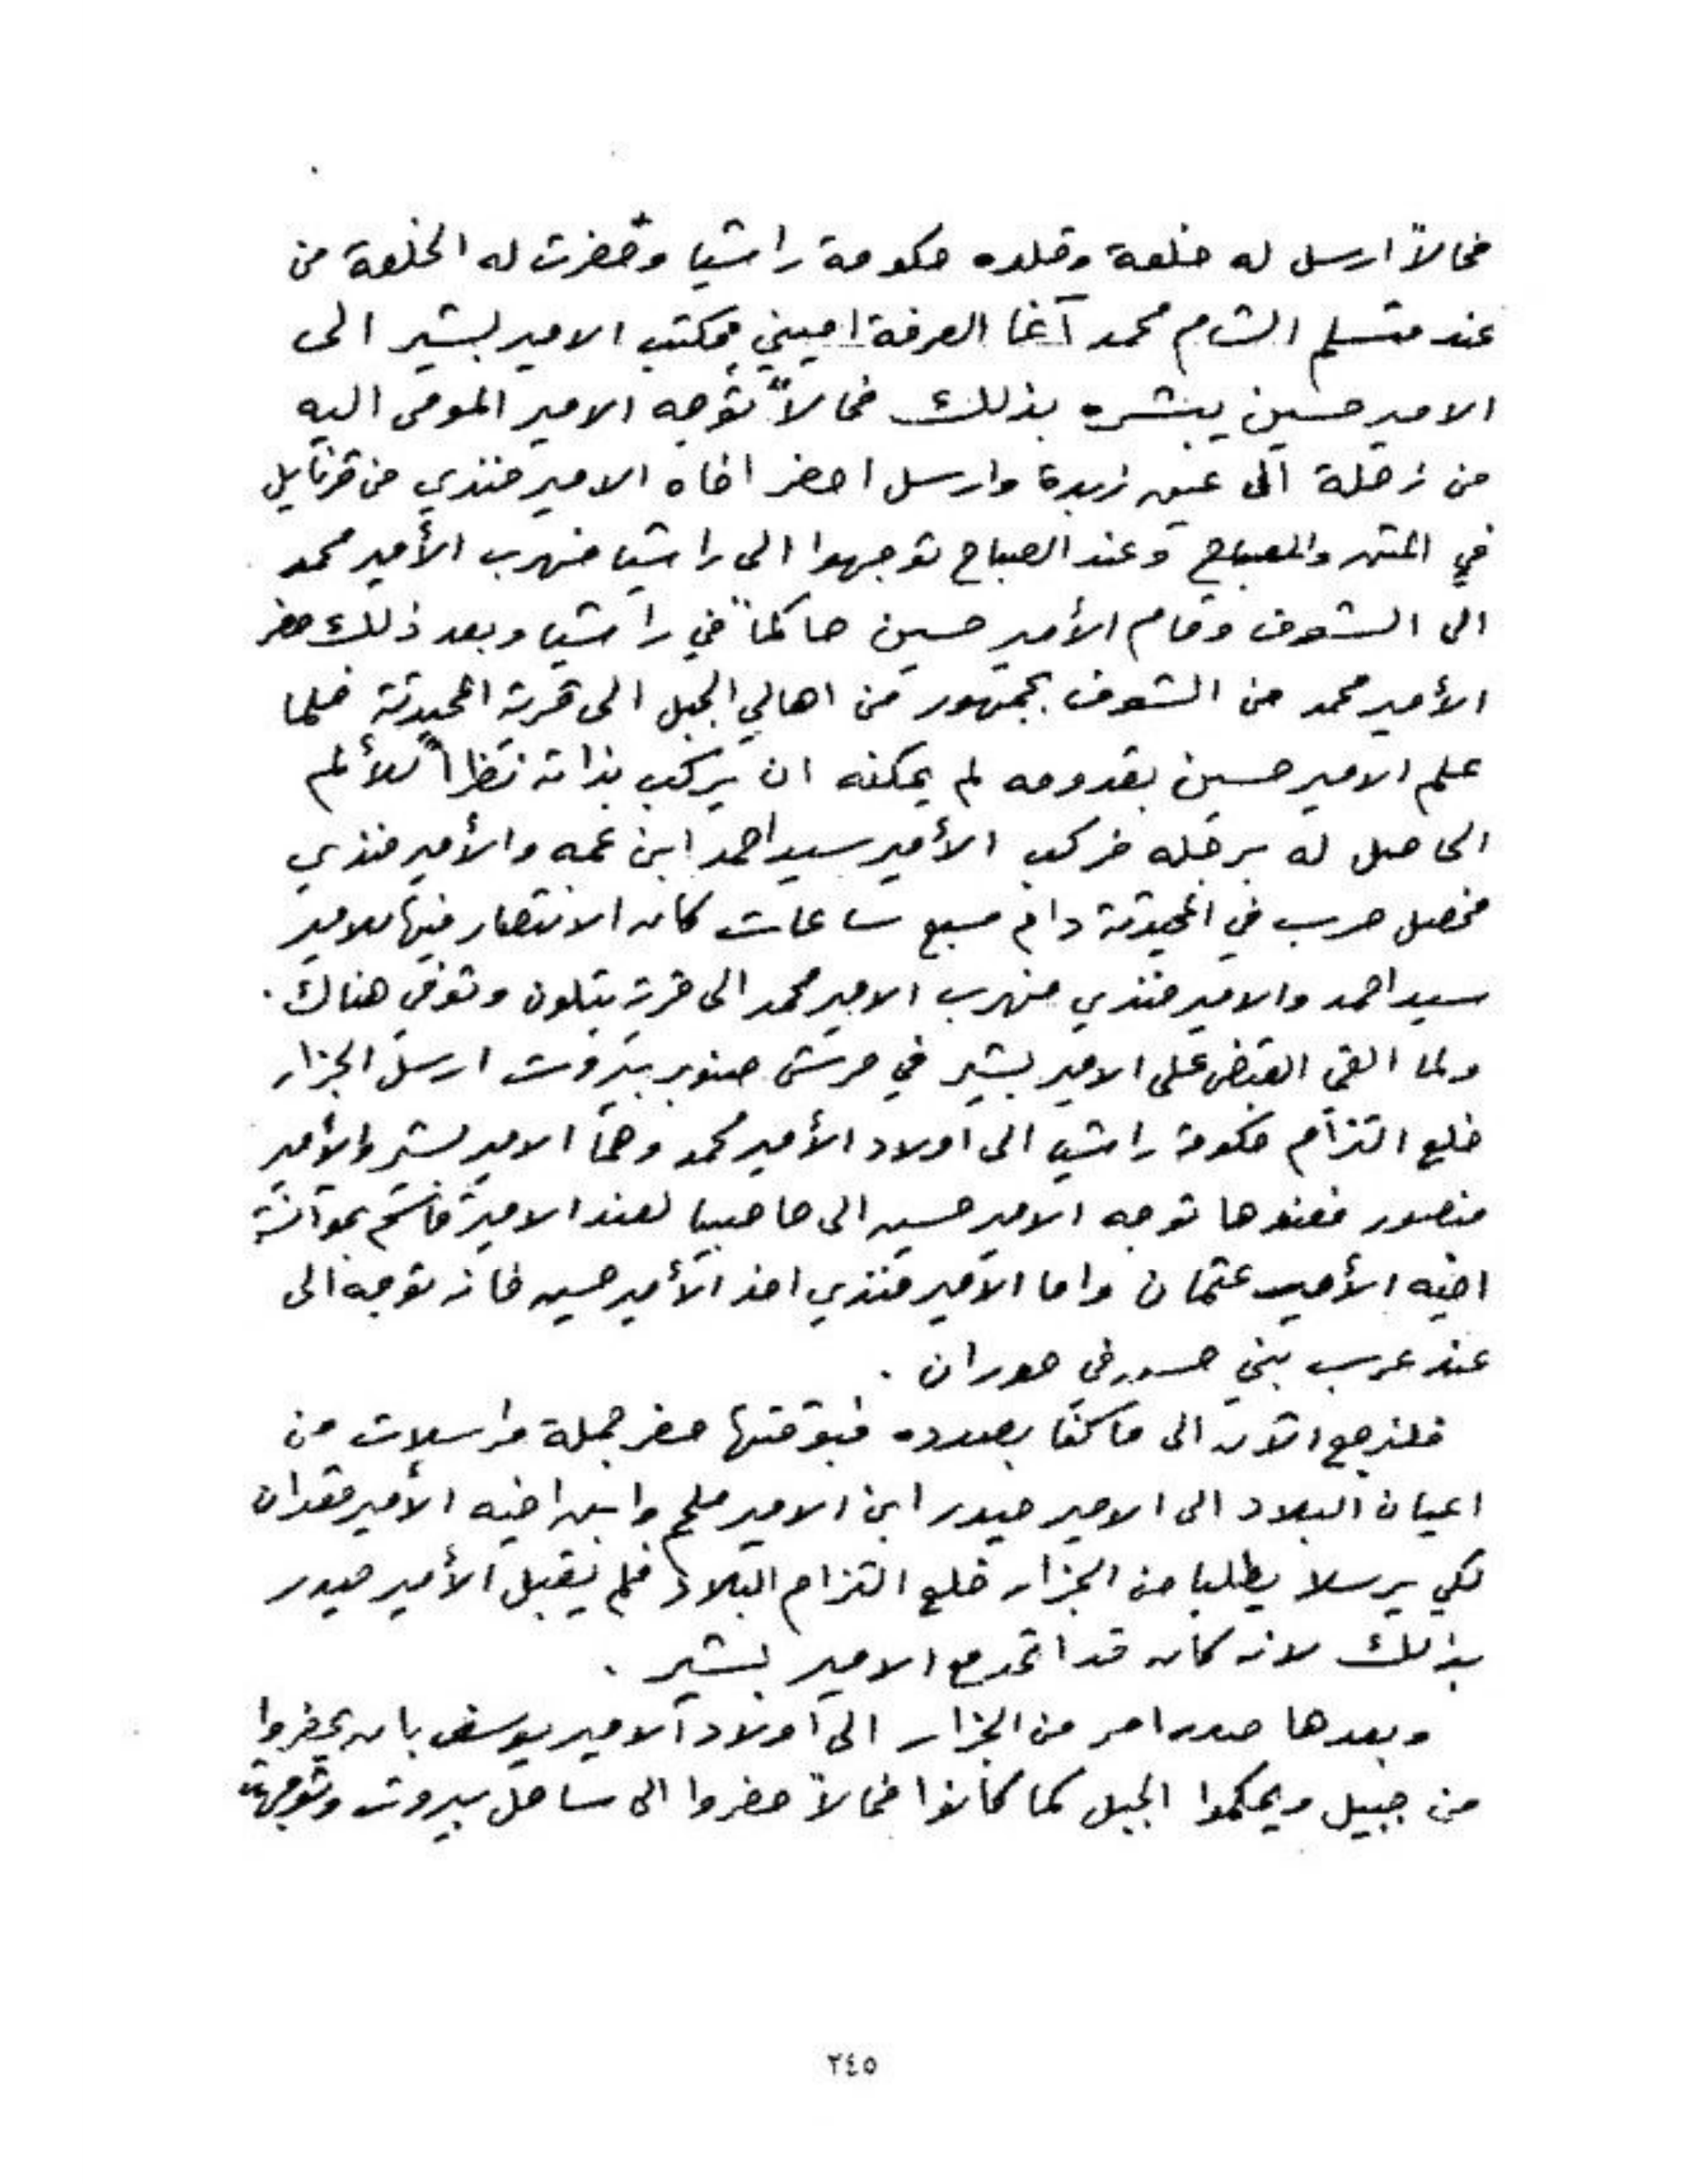 فحالاً ارسل له خلعة وقلده حكومة راشيا وحضرت له الخلعة من
عند متسلم الشام محمد آغا العرفة اميني فكتب الامير بشير الى
الامير حسين يبشره بذلك فحالاً توجه الامير المومى اليه
من زحلة الى عين زبدة وارسل احضر اخاه الامير فندي من قرنايل
في المتن والصباح وعند الصباح توجهوا الى راشيا فهرب الأمير محمد
الى الشوف وقام الأمير حسين حاكماً في راشيا وبعد ذلك حضر
الأمير محمد من الشوف بجمهور من اهالي الجبل الى قرية المحيدثة فلما
علم الامير حسين بقدومه لم يمكنه ان يركب بذاته نظراً للألم
الحاصل له برجله فركب الأمير سيد احمد ابن عمه والأمير فندي
فحصل حرب في المحيدثة دام سبع ساعات كان الانتصار فيها للامير
سيد احمد والامير فندي فهرب الامير محمد الى قرية بتلون وتوفي هناك .
ولما القي القبض على الامير بشير في حرش صنوبر بيروت ارسل الجزار
خلع التزام حكومة راشيا الى اولاد الأمير محمد وهما الامير بشير والأمير
منصور فعندها توجه الامير حسين الى حاصبيا لعند الامير قاسم بموآنسة
اخيه الأمير عثمان واما الامير فندي اخذ الأمير حسين فانه توجه الى
عند عرب بني حسن في حوران .
فلنرجع الآن الى ما كنا بصدده فبوقتها حضر جملة مراسلات من
اعيان البلاد الى الامير حيدر ابن الامير ملحم وابن اخيه الأمير قعدان
لكي يرسلا يطلبا من الجزار خلع التزام البلاد فلم يقبل الأمير حيدر
بذلك لانه كان قد اتحد مع الامير بشير .
وبعدها صدر امر من الجزار الى اولاد الامير يوسف بان يحضروا
من جبيل ويحكموا الجبل كما كانوا فحالاً حضروا الى ساحل بيروت وتوجهت
٢٤٥